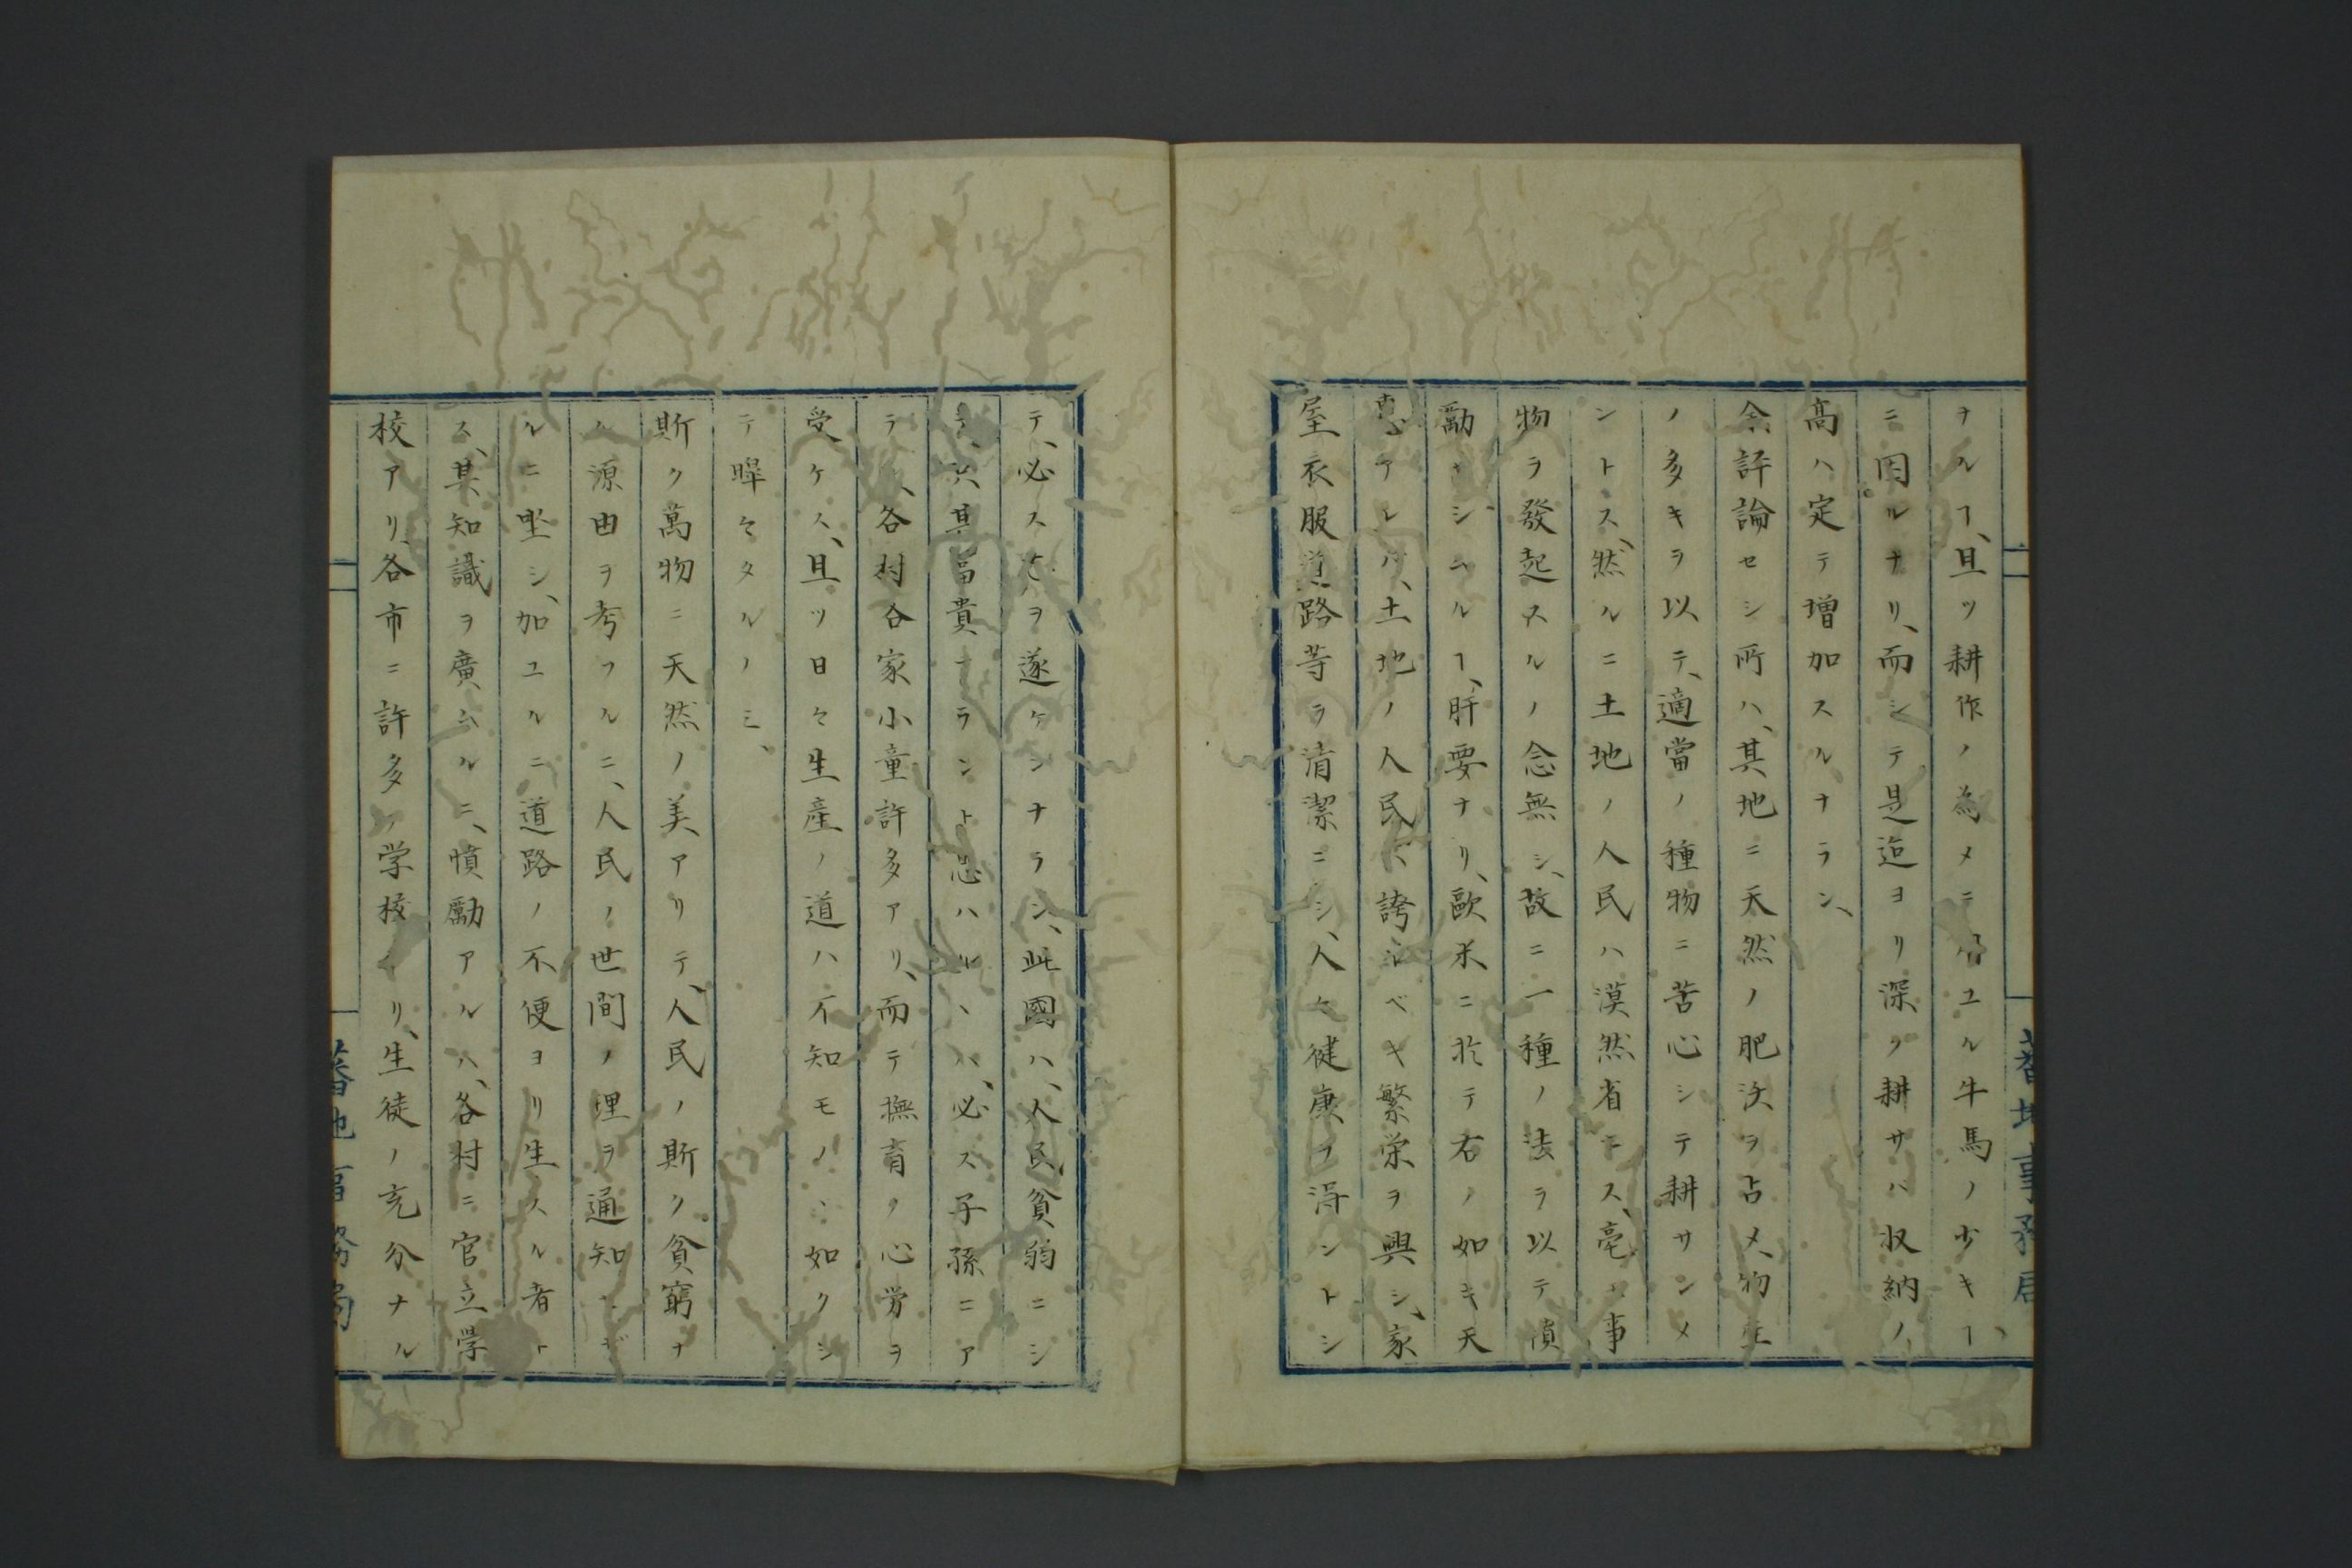 ナルヿ、且ツ耕作ノ為メニ用ユル牛馬ノ少キヿ、
ニ因ルナリ、而シテ是迄ヨリ深ク耕サバ収納ノ
高ハ定テ増加スルナラン、
余評論セシ所ハ、其地ニ天然ノ肥沃ヲ占メ、物産
ノ多キヲ以テ、適當ノ種物ニ苦心シテ耕サンメ
ントス、然ルニ土地ノ人民ハ漠然省ミス、毫モ事
物ヲ發起スルノ念無シ、故ニ一種ノ法ヲ以テ憤
勵セシムルヿ、肝要ナリ、歐米ニ於テ右ノ如キ天
恵アレバ、土地ノ人民ハ誇ルベキ繁栄ヲ興シ、家
屋衣服道路等ヲ清潔ニシ、人々健康ヲ得ントシ
テ、必ス之ヲ遂ケシナラン、此國ハ、人民貧弱ニシ
テ、其富貴ナラント思ハルレバ、必ス子孫ニア
テ、各村各家小童許多アリ、而テ撫育ノ心労ヲ
受ケス、且ツ日々生産ノ道ハ不知モノヽ如クシ
テ皥々タルノミ、
斯ク萬物ニ天然ノ美アリテ、人民ノ斯ク貧窮ナ
ル源由ヲ考フルニ、人民ノ世間ノ理ヲ通知セザ
ルニ坐シ、加ユルニ道路ノ不便ヨリ生スル者ト
ス、其知識ヲ廣ムルニ、憤勵アルハ、各村ニ官立学
校アリ、各市ニ許多ノ学校アリ、生徒ノ充分ナル
蕃地事務局